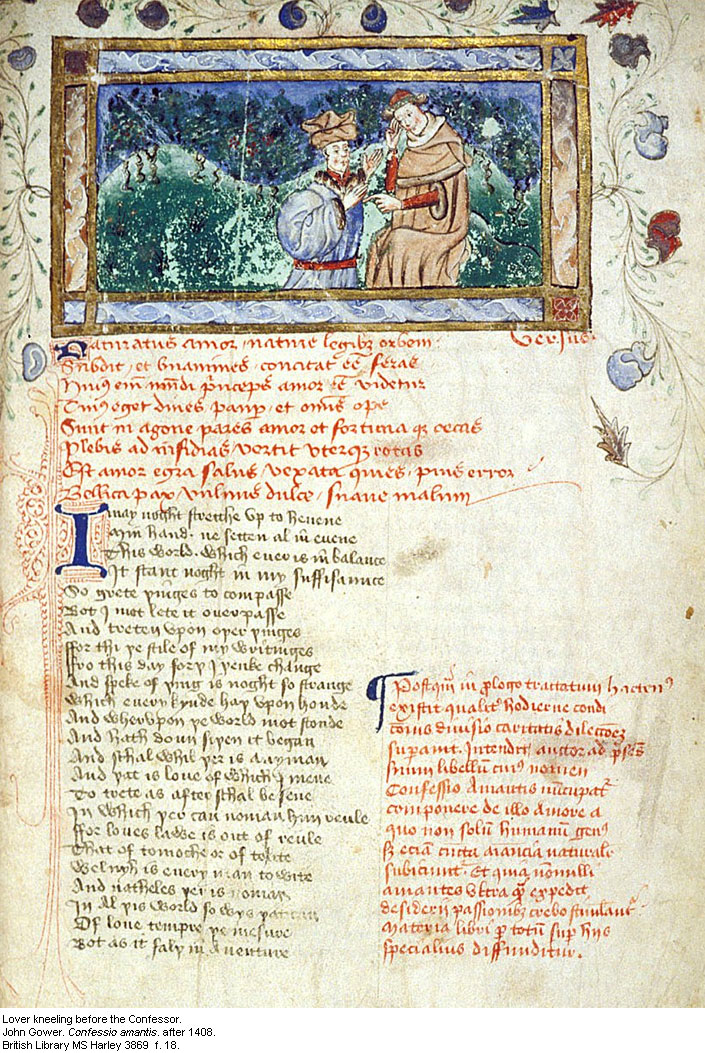 Naturatus amor nature legibus orbem Versus
Subdit et unanimes concitat esse feras
Huius enim mundi Princeps amor esse videtur
Cuius eget diues pauper et omnis ope
Sunt in agone pares amor et fortuna que cecas
Plebis ad insidias vertit vterque rotas
Est amor egra salus vexata quies pius error
Bellica pax vulnus dulce suaue malum
I may noght strecche vp to heuene
Min hand ne setten al in euene
This world which euer is in balance
It stant noght in my suffisance
So grete þinges to compasse
Bot I mot lete it ouerpasse
And treten vpon oþer þinges
ffor thi þe stile of my writinges
ffro this day forþ I þenke change
And speke of þing is noght so strange
Which euery kynde haþ vpon honde
And whervpon þe world mot stonde
And hath don siþen it began
And schal whil þer is any man
And þat is loue of which I mene
To trete as after schal be sene
In which þer can noman him reule
ffor loues lawe is out of reule
That of tomoche or of tolite
Welnyh is euery man to wite
And natheles þer is noman
In al þis world so wys þat can
Of loue tempre þe mesure
Bot as it falþ in auenture
Postquam in prologo tractatum hactenus
existit qualiter hodierne condi
cionis diuisio caritatis dileccionem
superauit Intendit auctor ad presens
suum libellum cuius nomen
Confessio Amantis nuncupatur
componere de illo amore a
quo non solum humanum genus
sed eciam cuncta animancia naturaliter
subiciuntur Et quia nonnulli
amantes vltra quam expedit
desiderii passionibus crebro stimulantur
materia libri per totum super hiis
specialius diffunditur.
Lover kneeling before the Confessor.
John Gower. Confessio amantis. after 1408.
British Library MS Harley 3869 f. 18.